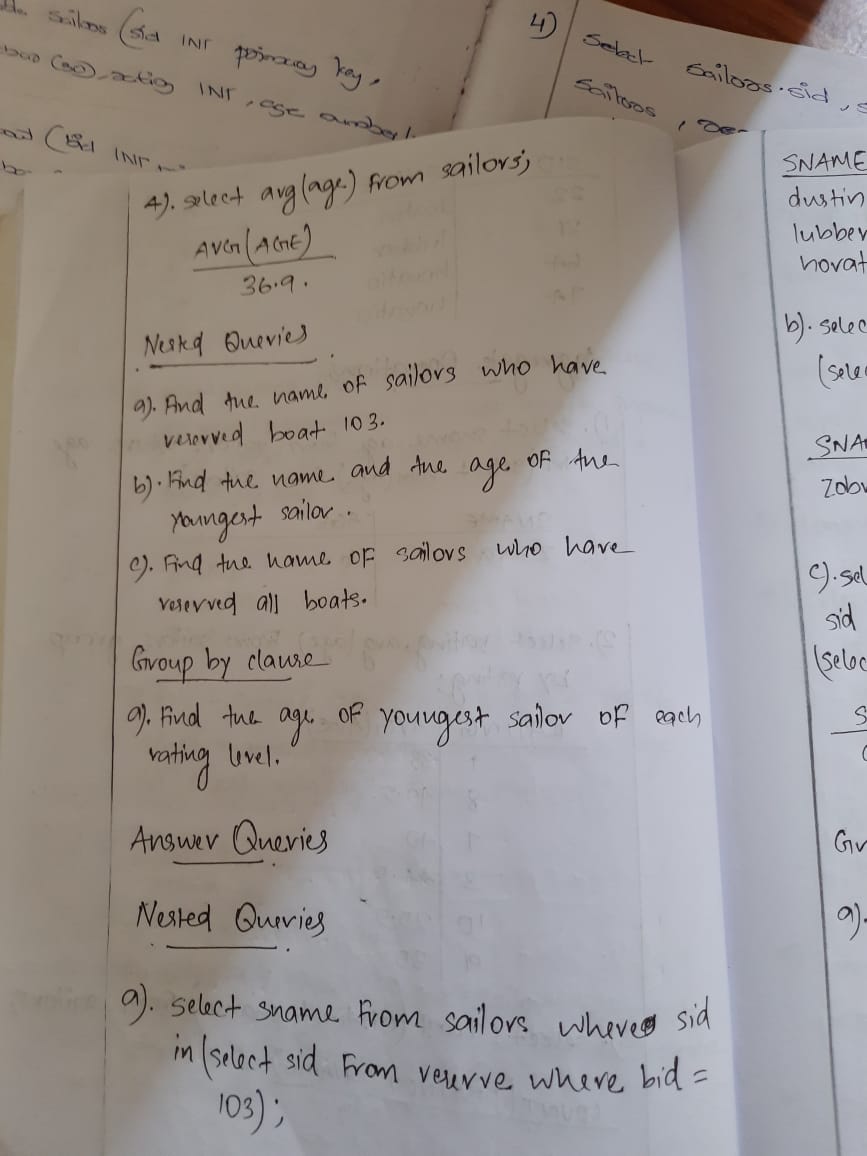 sailors (sid INT primary key,
INT, age number
INT
4) Select Sailors.sid,
Sailors,
4). select avg(age) from sailors;
AVG(AGE)
36.9.
Nested Queries
a). Find the name of sailors who have
reserved boat 103.
b). Find the name and the age of the
youngest sailor.
c). Find the name of sailors who have
reserved all boats.
Group by clause
a). Find the age of youngest sailor of each
rating level.
Answer Queries
Nested Queries
a). select sname from sailors where sid
in (select sid from reserve where bid =
103);
SNAME
dustin
lubber
horat
b). selec
(sele
SNA
zob
c). sel
sid
(selec
S
Gr
a).